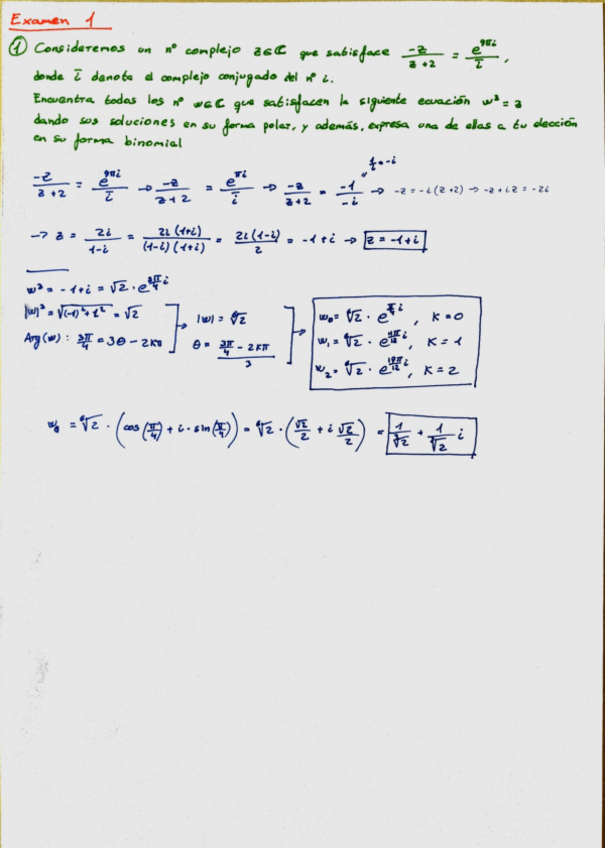 Examen 1
① Consideremos un nº complejo z∈ℂ que satisface -z/(z+2) = e^{9πi}/i̅,
donde i̅ denota el complejo conjugado del nº i.
Encuentra todos los nº w∈ℂ que satisfacen la siguiente ecuación w³ = z
dando sus soluciones en su forma polar, y además, expresa una de ellas a tu elección
en su forma binomial
i̅ = -i
-z/(z+2) = e^{9πi}/i̅ → -z/(z+2) = e^{πi}/i̅ → -z/(z+2) = -1/-i → -z = -i(z+2) → -z+iz = -2i
→ z = 2i/(1-i) = 2i(1+i)/((1-i)(1+i)) = 2i(1-i)/2 = -1+i → z = -1+i
w³ = -1+i = √2 · e^{3π/4 i}
|w|³ = √((-1)²+1²) = √2
Arg(w): 3π/4 = 3θ - 2kπ
→ |w| = ⁶√2
θ = (3π/4 - 2kπ)/3
→ w₀ = ⁶√2 · e^{π/4 i}, K=0
w₁ = ⁶√2 · e^{11π/12 i}, K=1
w₂ = ⁶√2 · e^{19π/12 i}, K=2
w₀ = ⁶√2 · (cos(π/4) + i · sin(π/4)) = ⁶√2 · (√2/2 + i √2/2) = 1/³√2 + 1/³√2 i